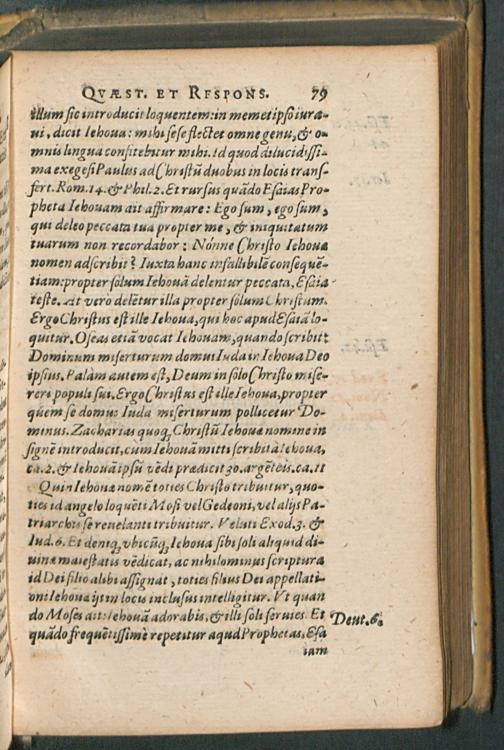 QVÆST. ET RESPONS. 79
illum sic introducit loquentem: in memetipso iura-
ui, dicit Iehoua: mihi sese flectet omne genu, & o-
mnis lingua confitebitur mihi. Id quod dilucidissi-
ma exegesi Paulus ad Christũ duobus in locis trans-
fert. Rom. 14. & Phil. 2. Et rursus quãdo Esaias Pro-
pheta Iehouam ait affirmare: Ego sum, ego sum,
qui deleo peccata tua propter me, & iniquitatum
tuarum non recordabor: Nónne Christo Iehouæ
nomen adscribit? Iuxta hanc infallibilẽ consequẽ-
tiam: propter solum Iehouã delentur peccata, Esaia
teste. At verò delẽtur illa propter solum Christum.
Ergo Christus est ille Iehoua, qui hoc apud Esaiã lo-
quitur. Oseas etiã vocat Iehouam, quando scribit:
Dominum miserturum domui Iuda in Iehoua Deo
ipsius. Palàm autem est, Deum in solo Christo mise-
reri populi sui. Ergo Christus est ille Iehoua, propter
quem se domus Iuda miserturum pollicetur Do-
minus. Zacharias quoq; Christũ Iehouæ nomine in
signè introducit, cum Iehouã mitti scribit à Iehoua,
ca. 2. & Iehouã ipsũ vẽdi prædicit 30. argẽteis. ca. 11
Quin Iehouæ nomẽ toties Christo tribuitur, quo-
ties id angelo loquẽti Mosi vel Gedeoni, vel alijs Pa-
triarchis se reuelanti tribuitur. Veluti Exod. 3. &
Iud. 6. Et deniq; vbicũq; Iehoua sibi soli aliquid di-
uinæ maiestatis vẽdicat, ac nihilominus scriptura
id Dei filio alibi assignat, toties filius Dei appellati-
oni Iehouæ ijs in locis inclusus intelligitur. Vt quan
do Moses ait: Iehouã adorabis, & illi soli seruies. Et
Deut. 6.
quãdo frequẽtissimè repetitur apud Prophetas, Esa
iam